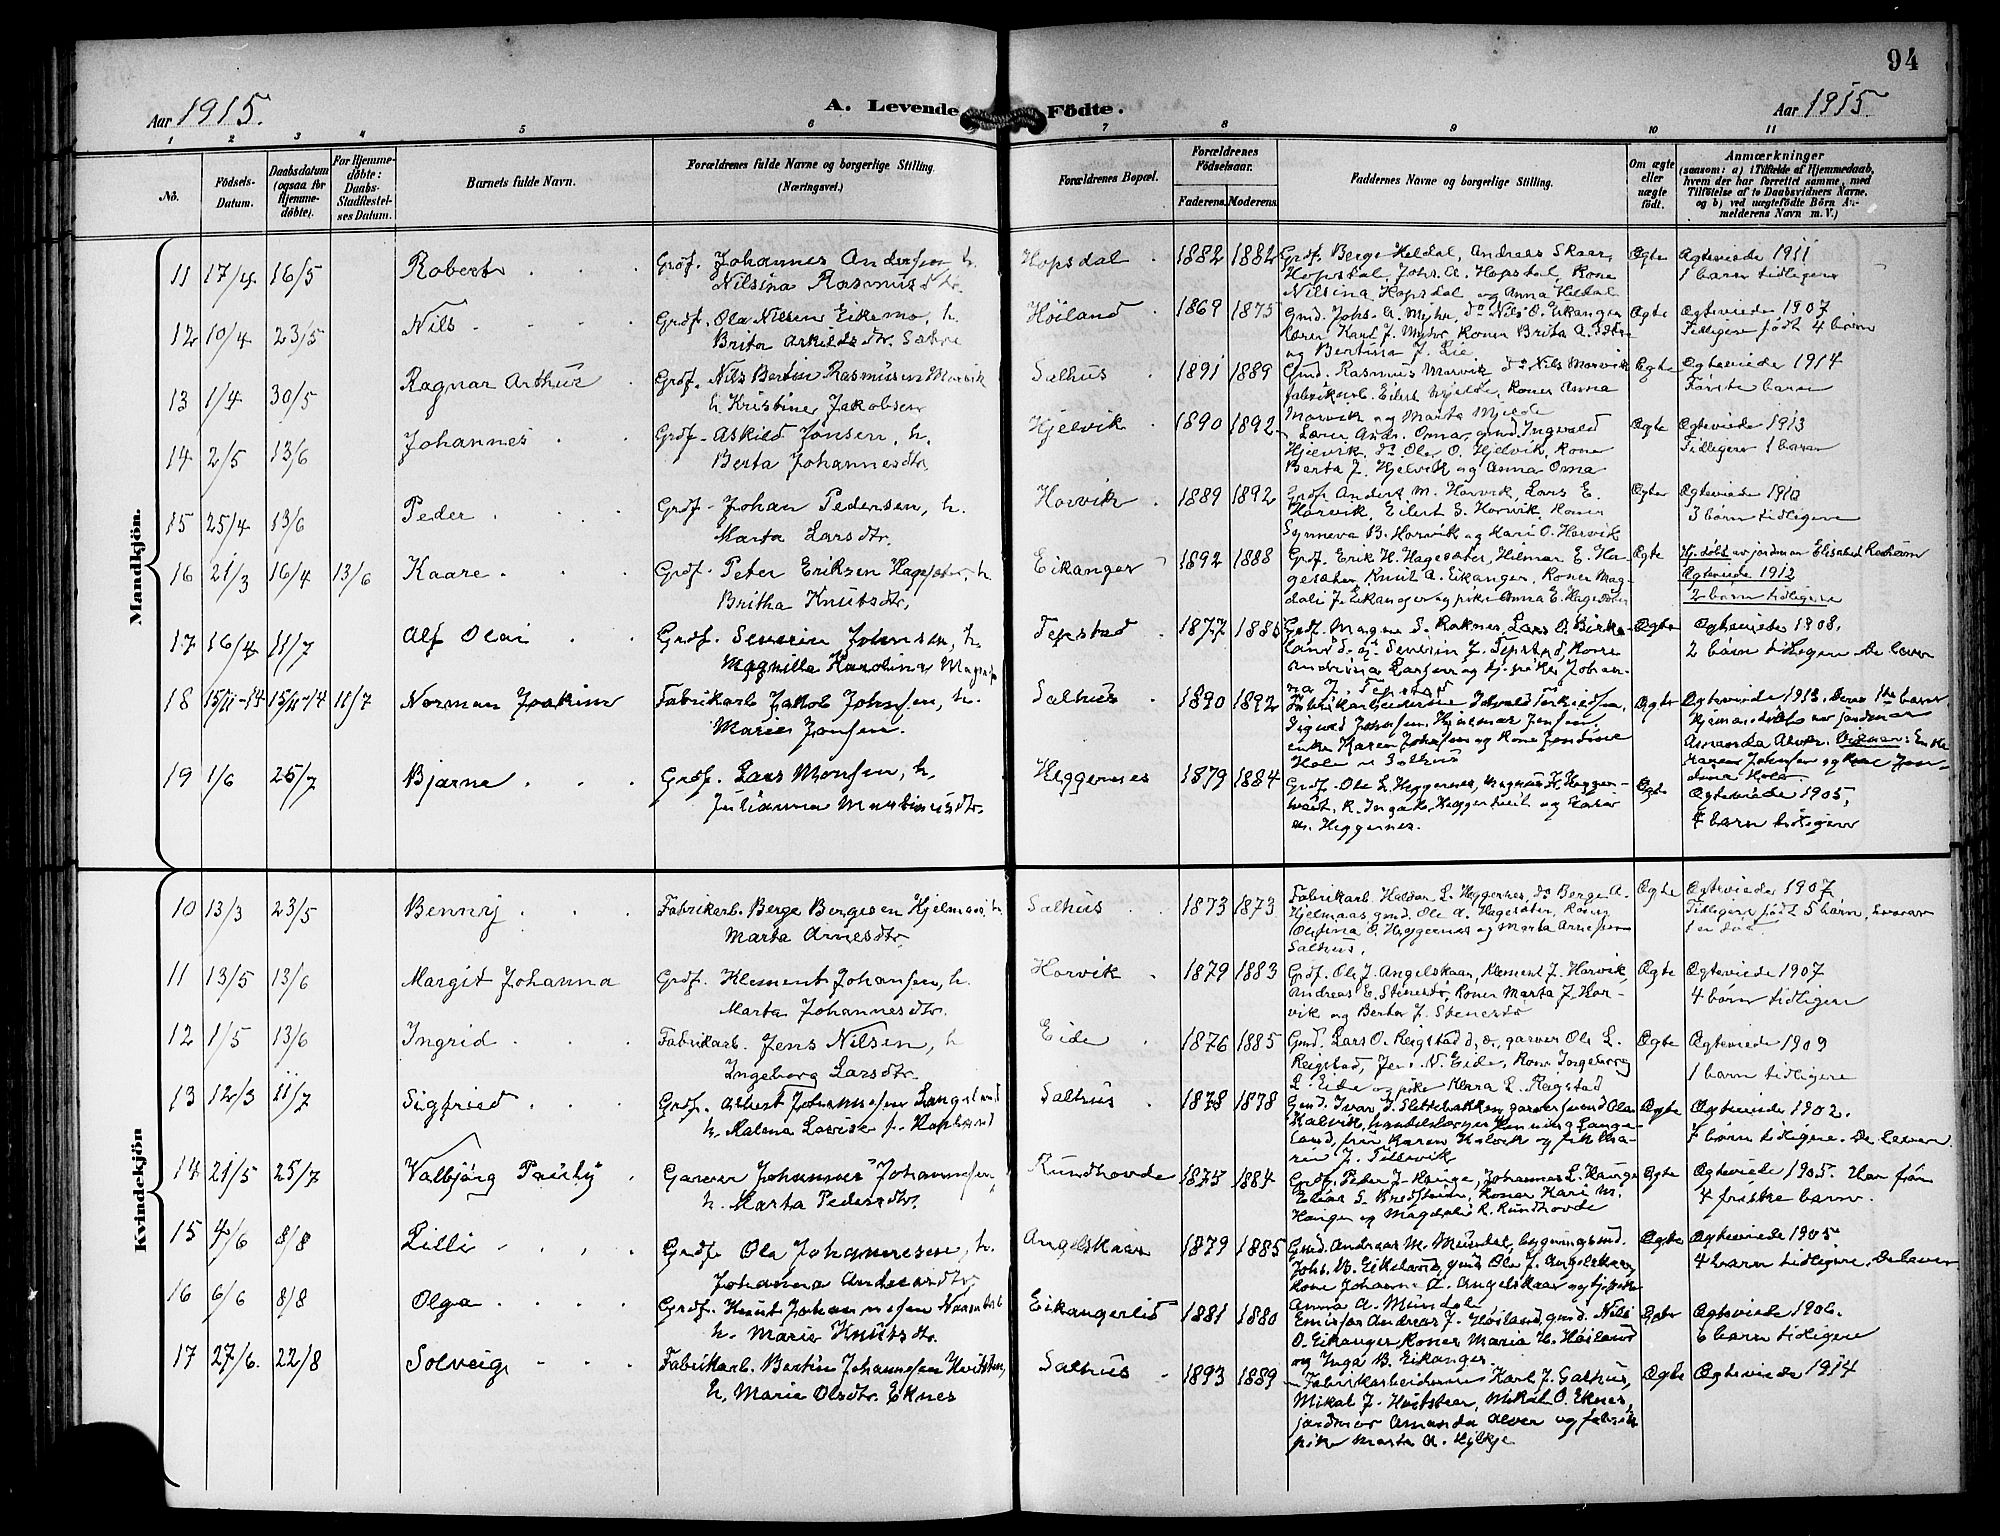 94
Aar 1915.
A. Levende Födte.
Aar 1915
1 2 3 4 5 6 7 8 9 10 11
No.
Födsels-Datum.
Daabsdatum (ogsaa for Hjemmedöbte).
For Hjemmedöbte: Daabs-Stadfestelses Datum.
Barnets fulde Navn.
Forældrenes fulde Navne og borgerlige Stilling. (Næringsvei.)
Forældrenes Bopæl.
Forældrenes Födselsaar.
Faderens. Moderens.
Faddernes Navne og borgerlige Stilling.
Om ægte eller uægte födt.
Anmærkninger
(saasom: a) i Tilfælde af Hjemmedaab, hvem der har forrettet samme, med Tilföielse af to Daabsvidners Navne, og b) ved uægtefödte Börn Anmelderens Navn m. V.)
Mandkjön.
11 17/4 16/5 Robert Grdf. Johannes Andersen h. Nilsina Rasmusdtr. Hopsdal 1882 1882 Grdf. Berge Heldal, Andreas Skaar
Hopsdal, Johs. A. Hopsdal, Kone
Nilsina Hopsdal og Anna Heldal Ægte Ægteviede 1911
1 barn tidligere
12 10/4 23/5 Nils Grdf. Ola Nilsen Eikemo, h. Brita Askildsdtr. Sætre Höiland 1869 1875 Gmd. Johs. A. Myhr, do Nils O. Eikanger
lærer Karl J. Myhr Koner Brita A.
og Bertina J. Lie Ægte Ægteviede 1907
Tidligere födt 4 barn
13 1/4 30/5 Ragnar Arthur Grdf. Nils Bertin Rasmusen Marvik
h. Kristine Jakobsen Salhus 1891 1889 Gmd. Rasmus Marvik do Nils Marvik
fabrikarb. Eilert Mjelde, Koner Anna
Marvik og Marta Mjelde Ægte Ægteviede 1914
Förste barn
14 2/5 13/6 Johannes Grdf. Askild Jonsen, h.
Berta Johannesdtr. Hjelvik 1890 1892 Lærer Andr. Omar, gmd. Ingvald
Hjelvik, do Olav O. Hjelvik, Kone
Berta J. Hjelvik og Anna Oma Ægte Ægteviede 1913
Tidligere 1 barn
15 25/4 13/6 Peder Grdf. Johan Pedersen, h.
Marta Larsdtr. Horvik 1889 1892 Grdf. Anders M. Horvik, Lars E.
Horvik, Eilert S. Horvik Koner
Synneva B. Horvik og Kari O. Horvik Ægte Ægteviede 1910
3 börn tidligere
16 21/3 16/4 13/6 Kaare Grdf. Peter Eriksen Hagesæter, h
Britha Knutsdtr. Eikanger 1892 1888 Grdf. Erik H. Hagesæter, Hilmar E. Ha-
gesæter, Knut A. Eikanger, Koner Mag-
dali J. Eikanger og pike Anna E. Hagesæter Ægte Hj. döbt av jordmor Elisabet
Ægteviede 1912
2 barn tidligere
17 16/4 11/7 Alf Olai Grdf. Severin Johnsen, h.
Magnilla Karolina Tepstad 1877 Grdf. Magne S. Raknes, Lars O. Birke-
land og Severin J. Tepstad, Kone
Andrina Larsen og tj. pike Johan-
na J. Tepstad Ægte Ægteviede 1908.
2 börn tidligere De lever
18 15/11-14 15/11-14 11/7 Norman Joakim Fabrikarb. Jakob Johnsen, h.
Marie Jonsen. Salhus 1890 1892 Fabrikarbeiderne
Sigvald Johnsen, Hjelmar Jensen,
enke Karen Johnsen og Kone Jondine
Hole, Salhus Ægte Ægteviede 1913. Deres 1ste barn.
Hjemmedöbt av jordmor
Amanda Alver. Vidner: Enke
Karen Johnsen og Kone Jon-
dina Hole
19 1/6 25/7 Bjarne Grdf. Lars Monsen, h.
Julianna Martinusdtr. Heggernes 1879 1884 Grdf. Ola L. Heggernes, Magnus H. Hegger-
tveit, K. Inga H. Heggertveit og Karen
M. Heggernes. Ægte Ægteviede 1905,
4 barn tidligere
Kvindekjön
10 13/3 23/5 Benny Fabrikarb. Berge Bergesen Hjelmaas, h.
Marta Arnesdtr. Salhus 1873 1873 Fabrikarb. Haldor L. Heggernes, do Berge A.
Hjelmaas, gmd. Ole A. Hagesæter, Koner
Olufina O. Heggernes og Marta Arnesen
Salhus. Ægte Ægteviede 1907
Tidligere födt 5 börn, hvorav
1 er död
11 13/5 13/6 Margit Johanna Grdf. Klement Johansen, h.
Marta Johannesdtr. Horvik 1879 1883 Grdf. Ole J. Angelskaar, Klement J. Horvik,
Andreas E. Stenestö, Koner Marta J. Hor-
vik og Berta J. Stenestö Ægte Ægteviede 1907
4 börn tidligere
12 1/5 13/6 Ingrid Fabrikarb. Jens Nilsen, h
Ingeborg Larsdtr. Eide 1876 1885 Gmd. Lars O. Reigstad d. æ., garver Ole L.
Reigstad, Jens N. Eide, Kone Ingeborg
L. Eide og pike Klara L. Ragstad Ægte Ægteviede 1909
1 barn tidligere
13 12/3 11/7 Sigfried Grdf. Albert Johannesen Langeland
h. Malena Lovise f. Hopland Salhus 1878 1878 Gmd. Ivar J. Slettebakken, garversvend Ola
Kalvik, handelsborger Henning Lange-
land, fru Karen Kalvik og frk. Ka-
ren J. Tellevik Ægte Ægteviede 1902.
7 börn tidligere. De lever
14 21/5 25/7 Valbjörg Pauly Garver Johannes Johannessen,
h. Marta Pedersdtr. Rundhovde 1875 1884 Grdf. Peter J. Hauge, Johannes L. Hauge
Elias S. Bredstein, Koner Kari M.
Haugen og Magdeli R. Rundhovde Ægte Ægteviede 1905. Har för
4 friske barn.
15 4/6 8/8 Lilli Grdf. Ola Johannesen, h.
Johanna Andersdtr. Angelskaar 1879 1885 Gmd. Andreas M. Mundal, bygningsmd.
Johs. B. Eikeland, gmd Ole J. Angelskaar,
Kone Johanne L. Angelskaar og tj. pike
Anna A. Mundal Ægte Ægteviede 1905
4 barn tidligere. De lever
16 6/6 8/8 Olga Grdf. Knut Johannesen
h. Marie Knutsdtr. Eikangerlid 1881 1880 Emissær Andreas J. Höiland, gmd. Nils
O. Eikanger Koner Maria H. Höiland
og Inga B. Eikanger. Ægte Ægteviede 1906.
6 barn tidligere
17 27/6. 22/8 Solveig Fabrikarb. Bertin Johannesen Hvitsten,
h. Marie Olsdtr. Eknes Salhus 1893 1889 Fabrikarbeiderne Karl J. Galhus,
Mikal J. Hvitsten, Mikal O. Eknes,
jordmor Amanda Alver og fabrik-
pike Marta A. Hylkje Ægte Ægteviede 1914